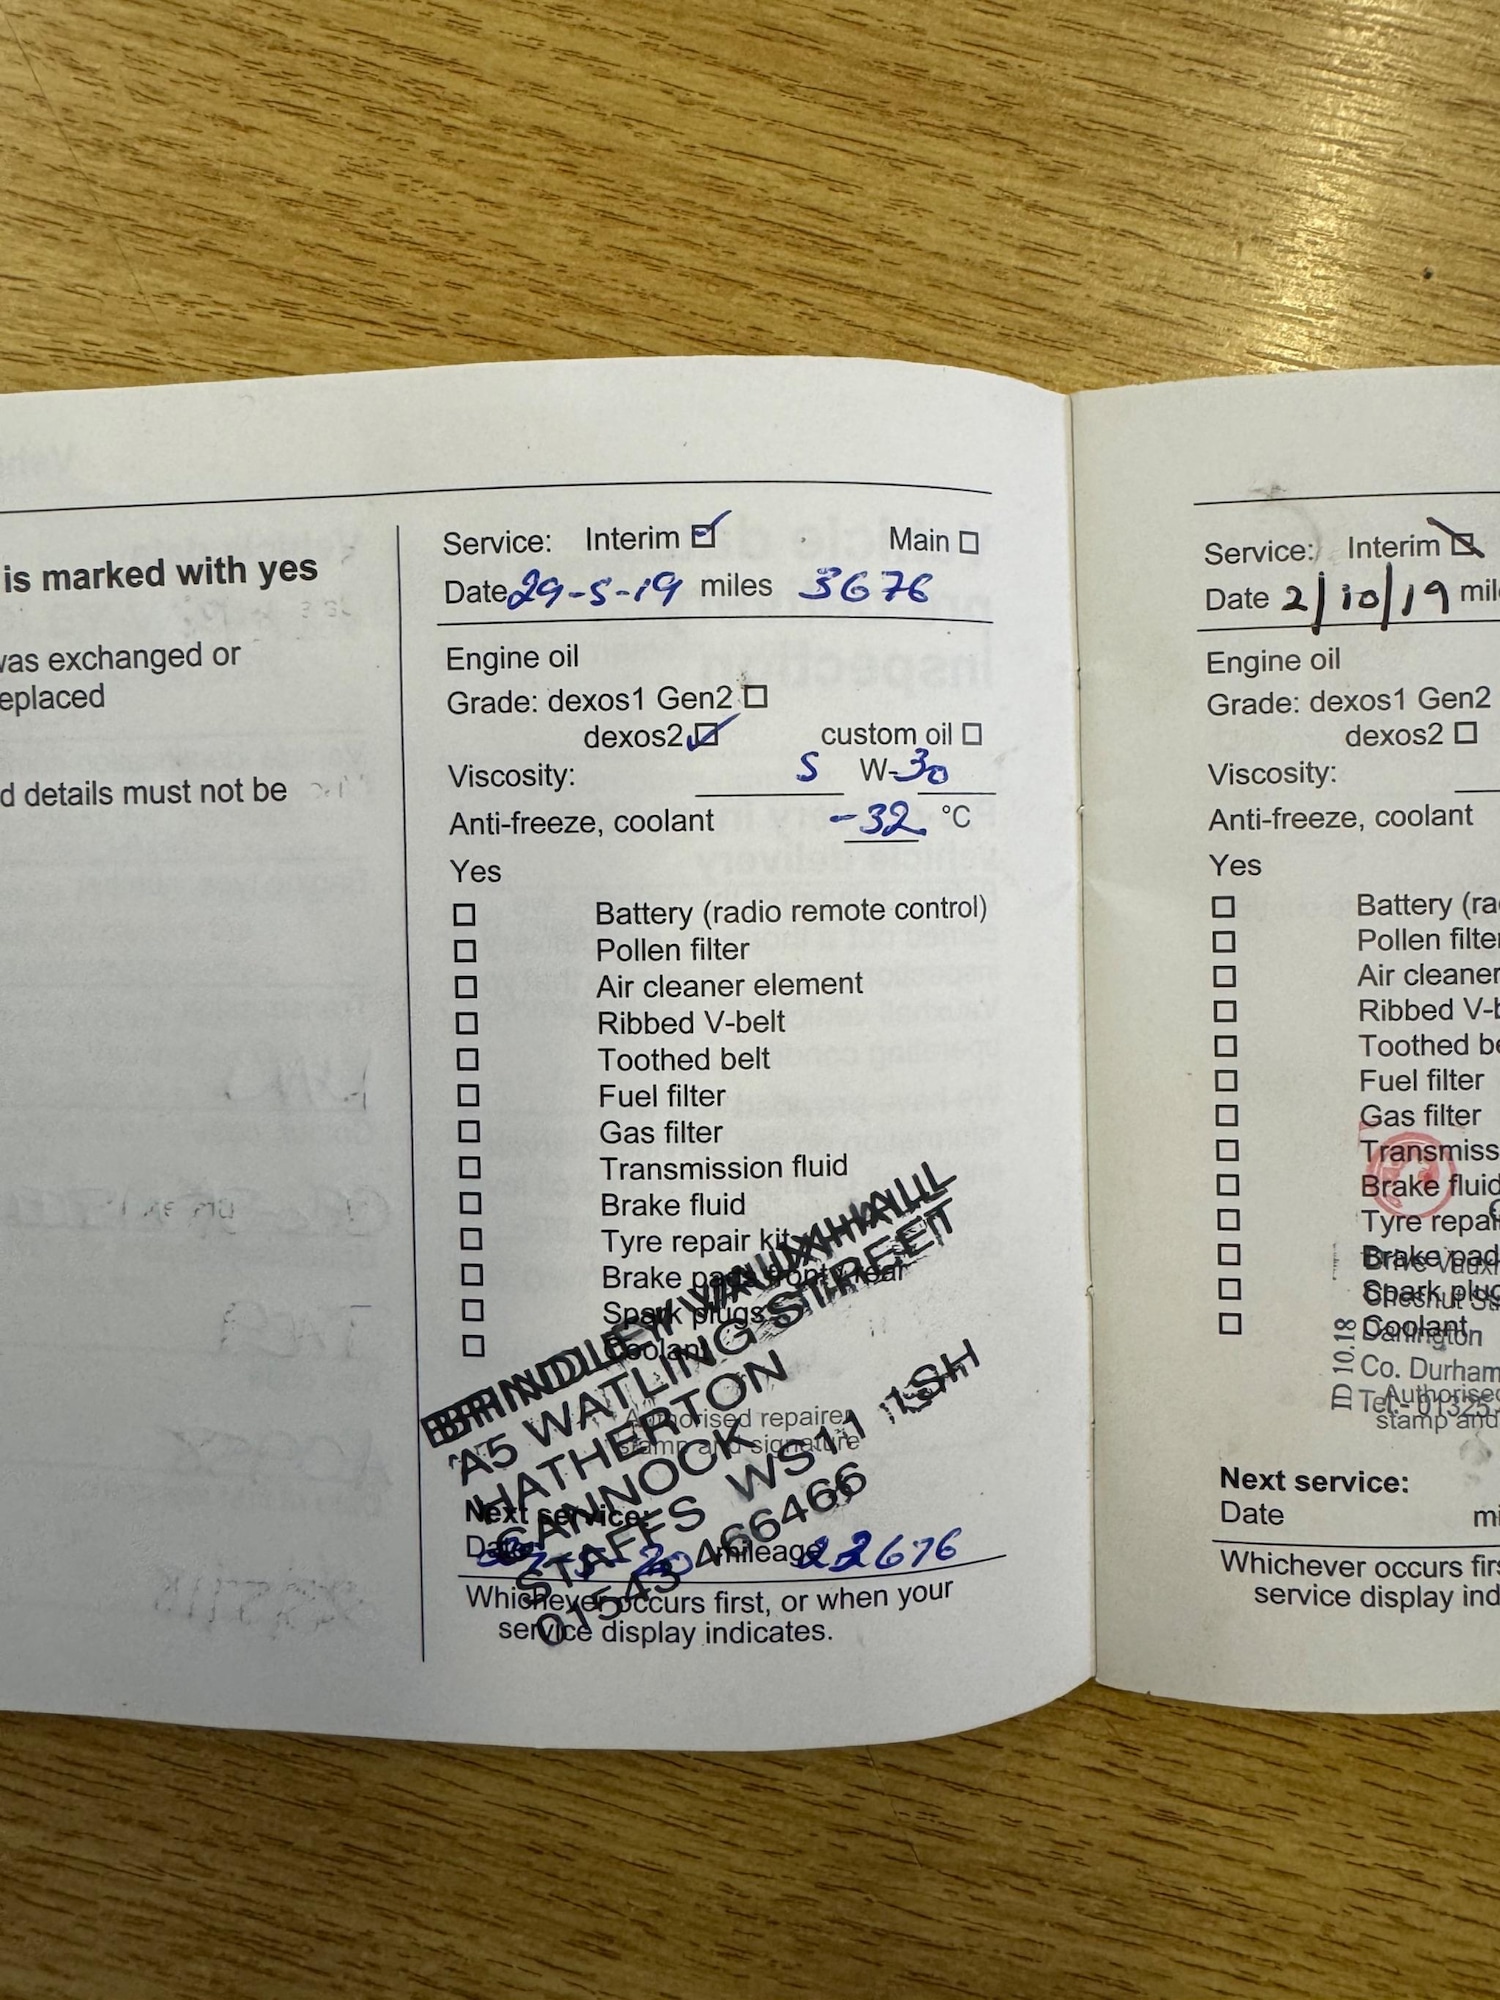 is marked with yes
was exchanged or
eplaced
d details must not be
Service: Interim Main
Date 29-5-19 miles 3676
Engine oil
Grade: dexos1 Gen2
dexos2 custom oil
Viscosity: 5 W-30
Anti-freeze, coolant -32 °C
Yes
Battery (radio remote control)
Pollen filter
Air cleaner element
Ribbed V-belt
Toothed belt
Fuel filter
Gas filter
Transmission fluid
Brake fluid
Tyre repair kit
Brake pads front / rear
Spark plugs
Coolant
BRINDLEY VAUXHALL
A5 WATLING STREET
HATHERTON
CANNOCK
STAFFS WS11 1SH
01543 466466
Authorised repairer
stamp and signature
Next service:
Date -5-20 mileage 22676
Whichever occurs first, or when your
service display indicates.
Service: Interim
Date 2/10/19 mil
Engine oil
Grade: dexos1 Gen2
dexos2
Viscosity:
Anti-freeze, coolant
Yes
Battery (ra
Pollen filter
Air cleaner
Ribbed V-b
Toothed be
Fuel filter
Gas filter
Transmiss
Brake fluid
Tyre repair
Brake pad
Spark plug
Coolant
Drive Vauxh
Chesnut St
Darlington
Co. Durham
Tel:- 01325
ID 10.18
Authorised
stamp and
Next service:
Date mi
Whichever occurs firs
service display ind